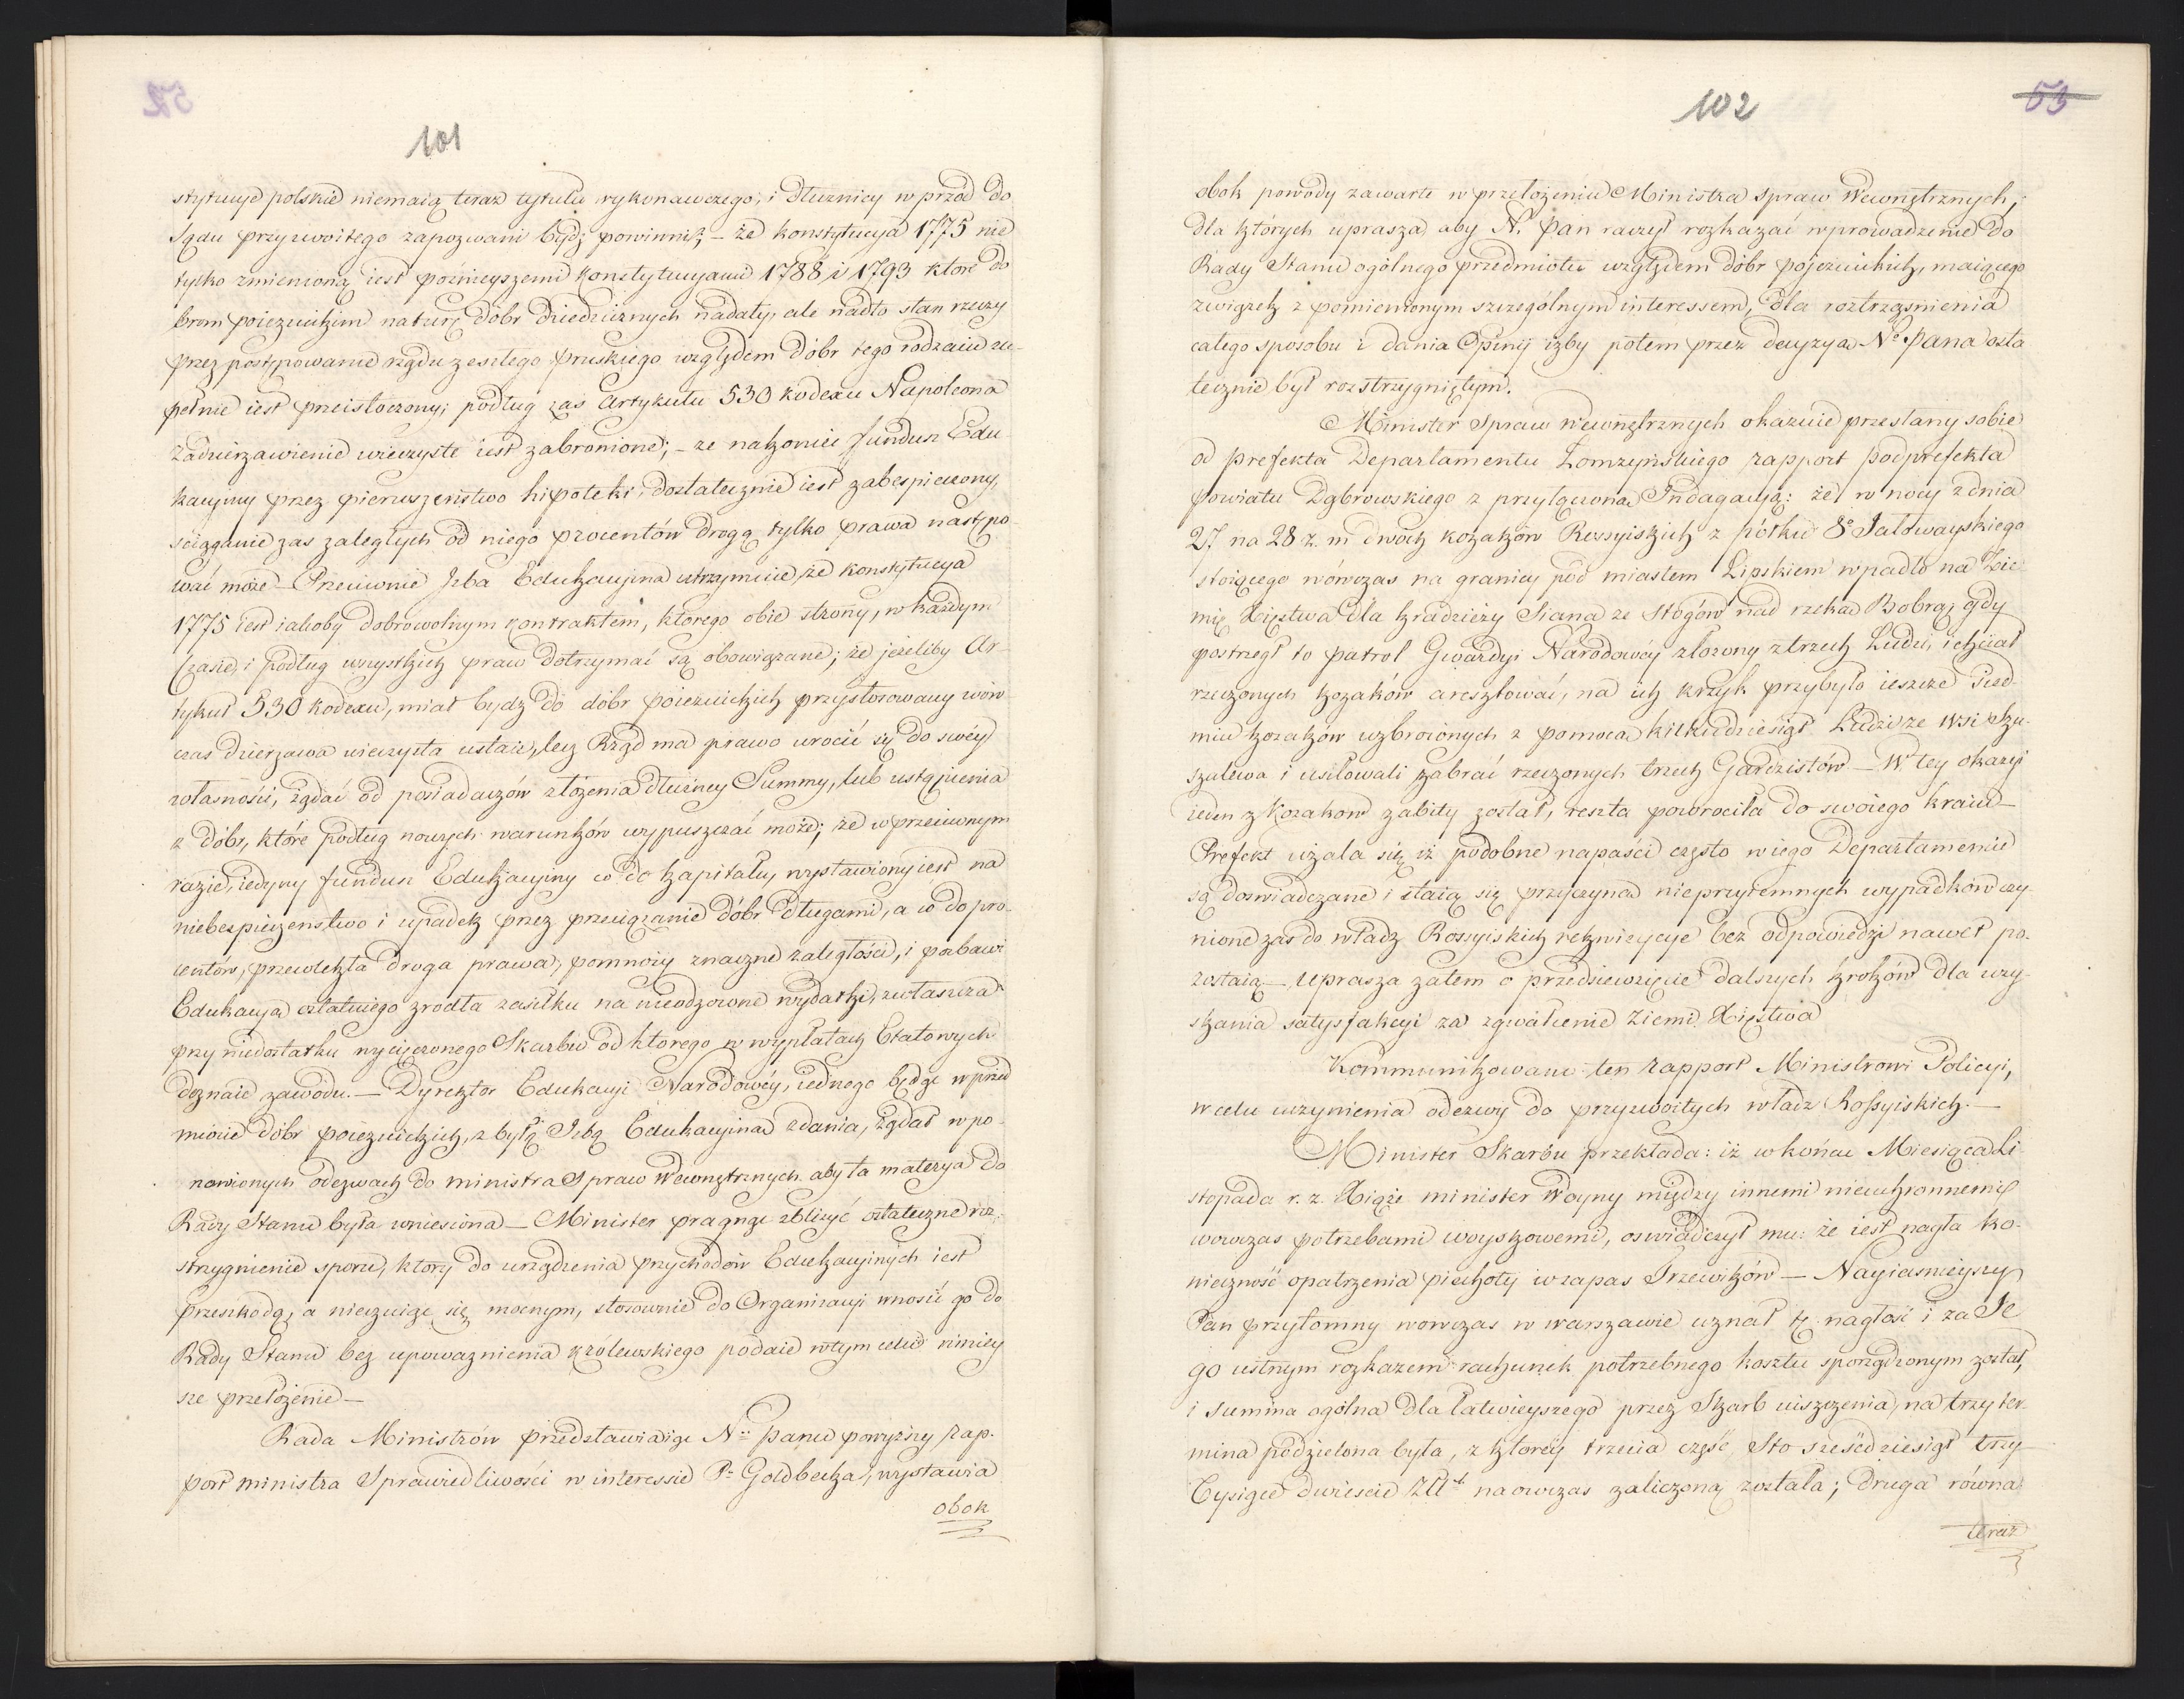 101
stytucye polskie niemaią teraz tytułu wykonawczego; i Dłużnicy wprzód do
Sądu przyzwoitego zapozwani bydź powinni, – że konstytucya 1775 nie
tylko zmienioną iest poźnieyszemi konstytucyami 1788 i 1793 które do
brom poiezuickim naturę dóbr Dziedzicznych nadały, ale nadto stan rzeczy
przez postępowanie rządu zeszłego pruskiego względem dóbr tego rodzaiu zu-
pełnie iest przeistoczony; podług zaś Artykułu 530 kodexu Napoleona
zadzierzawienie wieczyste iest zabronione; – że nakoniec fundusz Edu
kacyiny przez pierwszeństwo hipoteki dostatecznie iest zabespieczony,
ściąganie zas zaległych od niego procentów drogą tylko prawa nastąpo-
wać może – Przeciwnie Izba Edukacyina utrzymuie, że konstytucya
1775 iest iakoby dobrowolnym kontraktem, którego obie strony, w każdym
czasie, i podług wszystkich praw dotrzymać są obowiązane; że jeżeliby Ar-
tykuł 530 kodexu, miał bydź do dóbr poiezuickich przystosowany wów-
czas dzierzawa wieczysta ustaie, lecz Rząd ma prawo wrócić się do swéy
własności, żądać od posiadaczów złożenia dłużney Summy, lub ustąpienia
z dóbr, które podług nowych warunków wypuszczać może; że w przeciwnym
razie, iedyny fundusz Edukacyiny co do kapitału, wystawiony iest na
niebezpieczenstwo i upadek przez przeciążanie dóbr długami, a co do pro-
centów, przewlekła droga prawa, pomnoży znaczne zaległości, i pozbawi
Edukacyą ostatniego zrodła zasiłku na nieodzowne wydatki, zwłaszcza
przy niedostatku wycięczonego Skarbu od ktorego w wypłatach Etatowych
doznaie zawodu. – Dyrektor Edukacyi Narodowéy, iednego będąc w przed
miocie dóbr poiezuickich, z byłą Izbą Edukacyiną zdania, żądał w po-
nowionych odezwach do ministra Spraw Wewnętrznych aby ta materya do
Rady Stanu była wniesiona – Minister pragnąc zbliżyć ostateczne roz-
strzygnienie sporu, ktory do urządzenia przychodów Edukacyinych iest
przeszkodą, a nieczuiąc się mocnym, stosownie do Organizacyi wnosić go do
Rady Stanu bez upowaznienia królewskiego podaie w tym celu niniey
sze przełożenie –
Rada Ministrów przedstawiaiąc N:: Panu powyższy rap-
port ministra Sprawiedliwości w interessie P: Goldbecka, wystawia
obok
102
53
obok powody zawarte w przełożeniu Ministra Spraw Wewnętrznych,
dla których uprasza, aby N. Pan raczył rozkazać wprowadzenie do
Rady Stanu ogólnego przedmiotu względem dóbr pojezuickich, maiącego
związek z pomienionym szczególnym interessem, dla roztrząsnienia
całego sposobu i dania Opinij izby potem przez decyzyą No Pana osta
tecznie był rozstrzygniętym.
Minister Spraw Wewnętrznych okazuie przesłany sobie
od prefekta Departamentu Łomżyńskiego rapport podprefekta
powiatu Dąbrowskiego z przyłączoną Indagacyą: że w nocy z dnia
27 na 28 z. m. dwóch kozaków Rossyiskich z półku 8o Iałowayskiego
stoiącego wówczas na granicy pod miastem Lipskiem wpadło na Zie
mię Xięstwa dla kradzieży Siana ze stogów nad rzeką Bobrą; gdy
postrzegł to patrol Gwardyi Narodowéy złożony z trzech Ludzi, i chciał
rzeczonych kozaków aresztować, na ich krzyk przybyło ieszcze Sied-
miu kozaków uzbroionych z pomocą kilkudziesiąt Ludzi ze Wsi
szalewa i usiłowali zabrać rzeczonych trzech Gardzistów – W tey okazyi
ieden z Kozaków zabity został, reszta powróciła do swoiego kraiu –
Prefekt użala się, iż podobne napaści często w iego Departamencie
są doswiadczane i staią się przyczyną nieprzyiemnych wypadków, czy-
nione zas do władz Rossyiskich rekwizycye bez odpowiedzi nawet po-
zostaią – Uprasza zatem o przedsięwzięcie dalszych kroków dla uzy-
skania satysfakcyi za zgwałcenie Ziemi Xięstwa
Kommunikowano ten rapport Ministrowi Policyi,
w celu uczynienia odezwy do przyzwoitych władz Rossyiskich. –
Minister Skarbu przekłada: iż w końcu Miesiąca Li-
stopada r. z. Xiąże minister Woyny między innemi nieuchronnemi
wowczas potrzebami woyskowemi, oswiadczył mu: że iest nagła ko-
nieczność opatrzenia piechoty w zapas Trzewików – Nayiasnieyszy
Pan przytomny wowczas w warszawie uznał tę nagłość i za Je
go ustnym rozkazem rachunek potrzebnego kosztu sporządzonym został,
i summa ogólna dla łatwieyszego przez Skarb uiszczenia, na trzy ter-
mina podzielona była, z ktoréy trzecia część, Sto sześćdziesiąt trzy
Tysiące dwieście Złt. naowczas zaliczoną została; druga równa
teraz